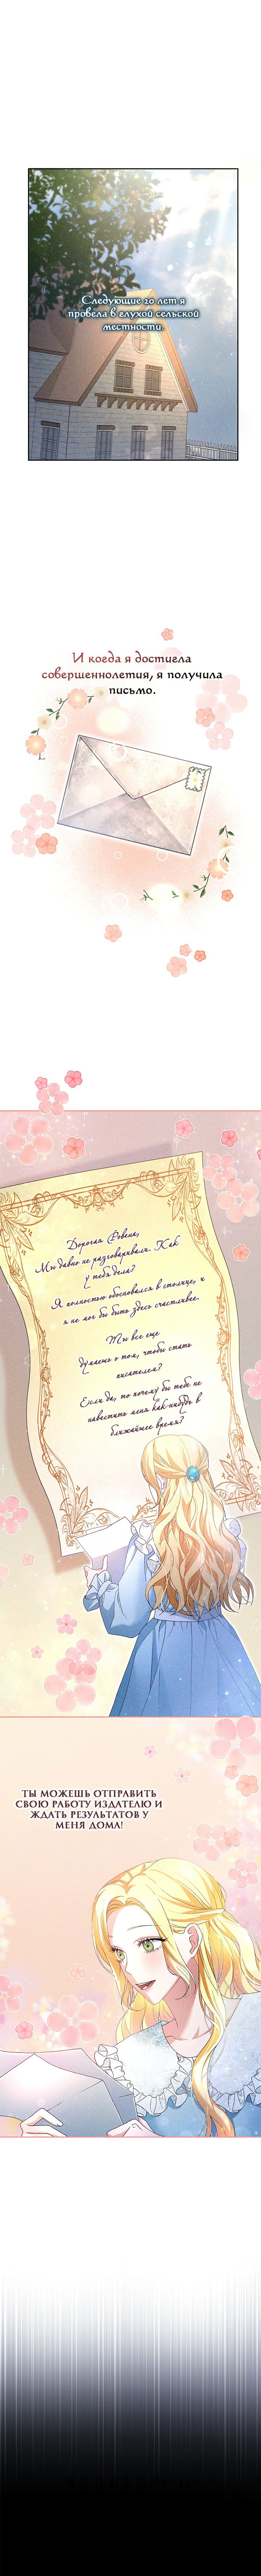 Следующие 20 лет я
провела в глухой сельской
местности.
И когда я достигла
совершеннолетия, я получила
письмо.
Дорогая Ровена,
Мы давно не разговаривали. Как
у тебя дела?
Я полностью обосновался в столице, и
я не мог бы быть здесь счастливее.
Ты все еще
думаешь о том, чтобы стать
писателем?
Если да, то почему бы тебе не
навестить меня как-нибудь в
ближайшее время?
ТЫ МОЖЕШЬ ОТПРАВИТЬ
СВОЮ РАБОТУ ИЗДАТЕЛЮ И
ЖДАТЬ РЕЗУЛЬТАТОВ У
МЕНЯ ДОМА!